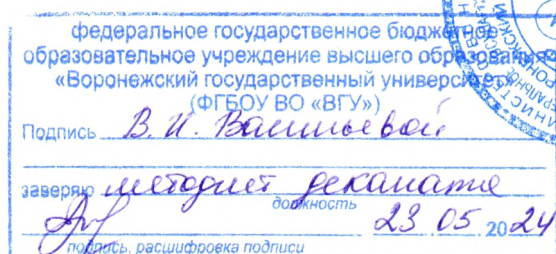 федеральное государственное бюджетное
образовательное учреждение высшего образования
«Воронежский государственный университет»
(ФГБОУ ВО «ВГУ»)
Подпись В. И. Васильевой
заверяю методист деканата
должность
23 05 2024
подпись, расшифровка подписи